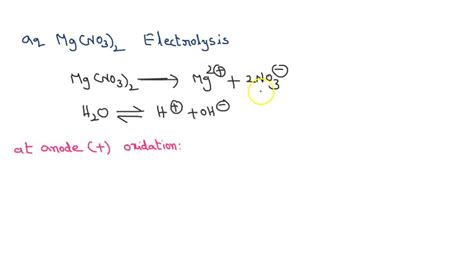 aq Mg(NO₃)₂ Electrolysis
Mg(NO₃)₂ ⟶ Mg²⁺ + 2NO₃⁻
H₂O ⇌ H⁺ + OH⁻
at anode (+) oxidation: